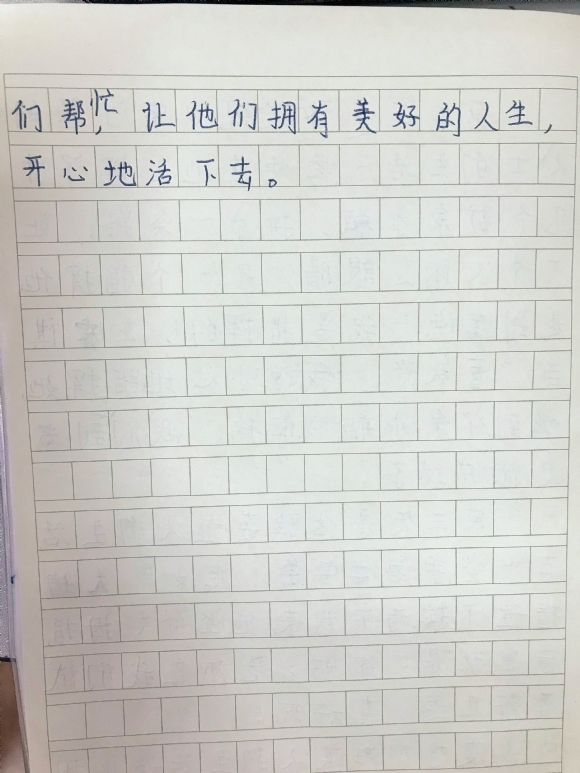 们帮忙,让他们拥有美好的人生,
开心地活下去。